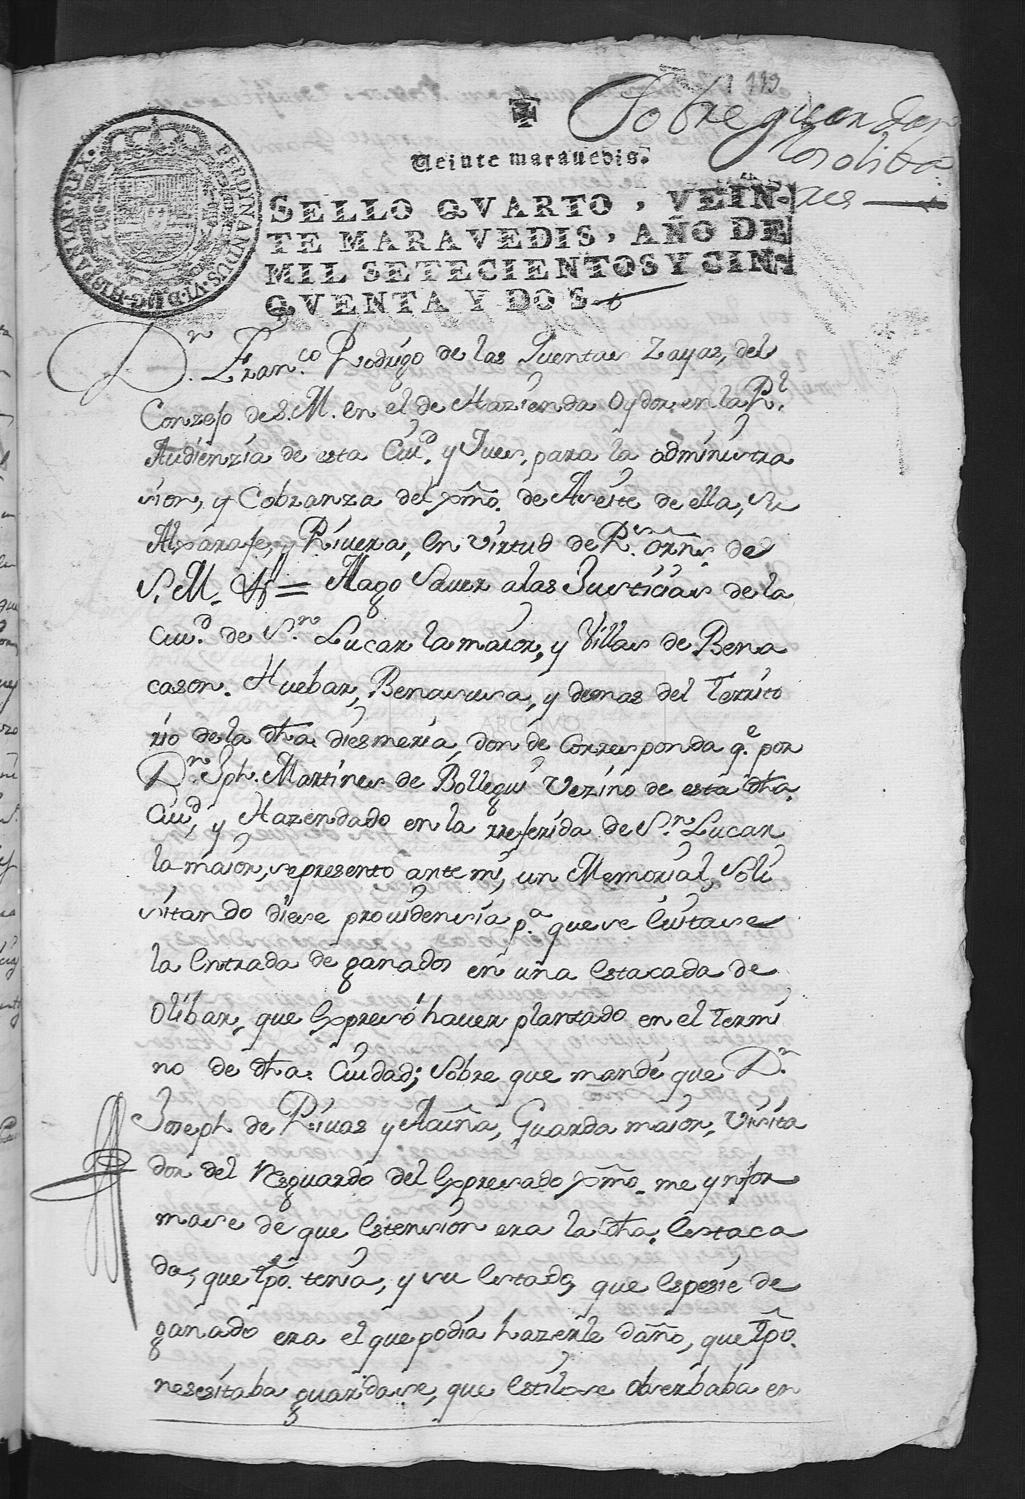 119
Sobre guardar
los oliba
res
Veinte maravedis.
SELLO QVARTO, VEIN-
TE MARAVEDIS, AÑO DE
MIL SETECIENTOS Y CIN-
QVENTA Y DOS
FERDINANDUS·VI·D·G·HISPANIAR·REX·
Dn. Franco. Rodrigo de las Quentas Zayas, del
Conzejo de S. M. en el de Hazienda Oydor en la Rl.
Audienzia de esta Ciud. y Jues, para la administra
sion, y Cobranza del xmo. de Aseite de ella, su
Alxarafe, y Rivera, en virtud de Rs. orns. de
S. M. &= Hago Saver a las Justicias de la
Ciud. de Sn. Lucar la maior, y Villas de Bena
cason. Huebar, Benasusa, y demas del Territo
rio de la dha. diesmeria, donde Corresponda qe. por
Dn. Jph. Martines de Bollegui Vezino de esta dha.
Ciud. y Hazendado en la rreferida de Sn. Lucar
la maior, se presento ante mi, un Memorial, Soli
sitando diese providensia pa. que se Evitase
la Entrada de ganados en una Estacada de
Olibar, que Expresó haver plantado en el Termi
no de dha. Ciudad; Sobre que mandé que Dn.
Joseph de Rivas y Acuña, Guarda maior, Visita
dor del Resguardo del Expresado xmo. me ynfor
mase de que Estension era la dha. Estaca
da, que tpo. tenia, y su Estado, que Espesie de
ganado era el que podia hazerle daño, que tpo.
nesesitaba guardarse, que Estilo se Obserbaba en
ARCHIVO